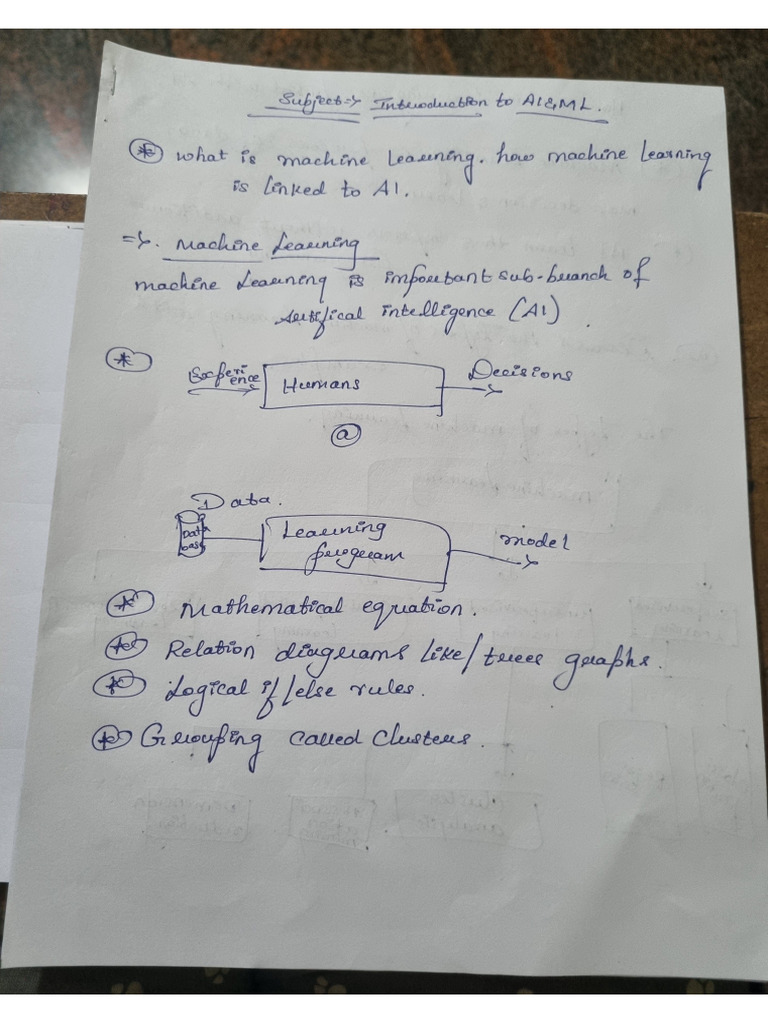 Subject=> Introduction to AI&ML.
* What is machine Learning. how machine learning
is linked to AI.
=>. Machine Learning
machine Learning is important sub-branch of
Artifical intelligence (AI)
*
Experi
ence
Humans
Decisions
a
Data.
Data
base
Learning
program
model
* Mathematical equation.
* Relation diagrams like/trees graphs.
* Logical if/else rules.
* Grouping called Clusters.